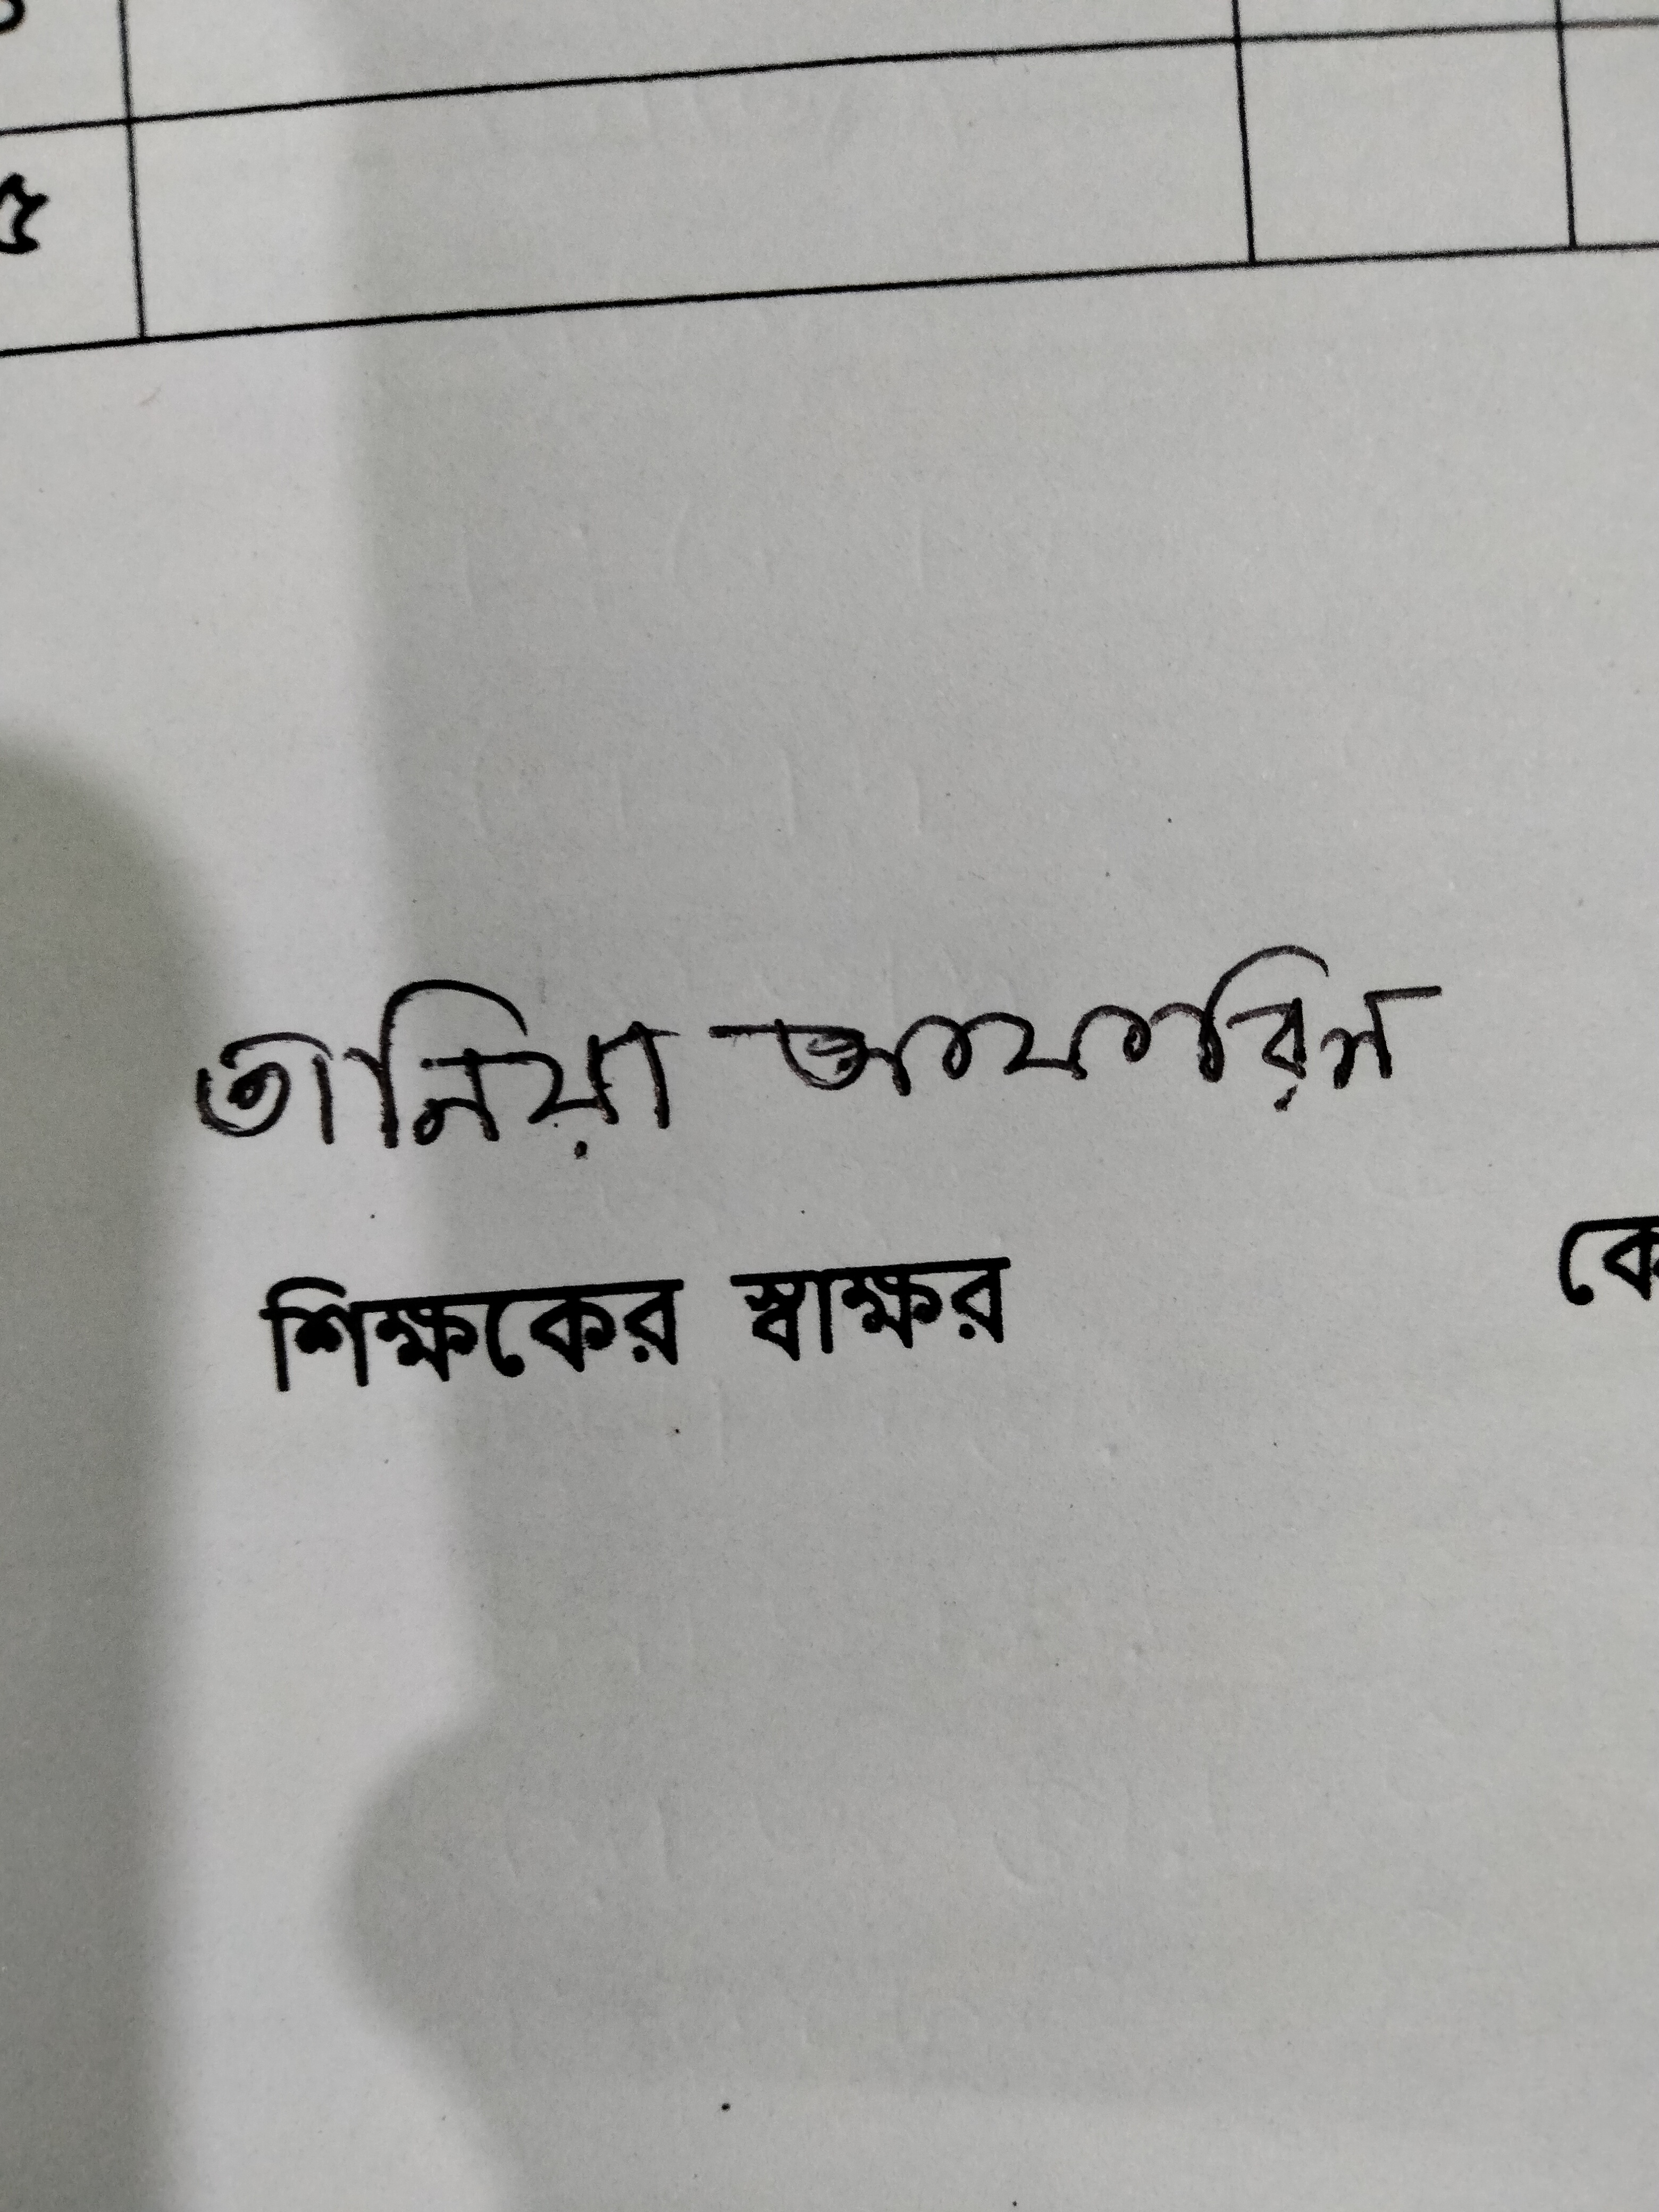 ৫
তানিয়া আফারিন
শিক্ষকের স্বাক্ষর